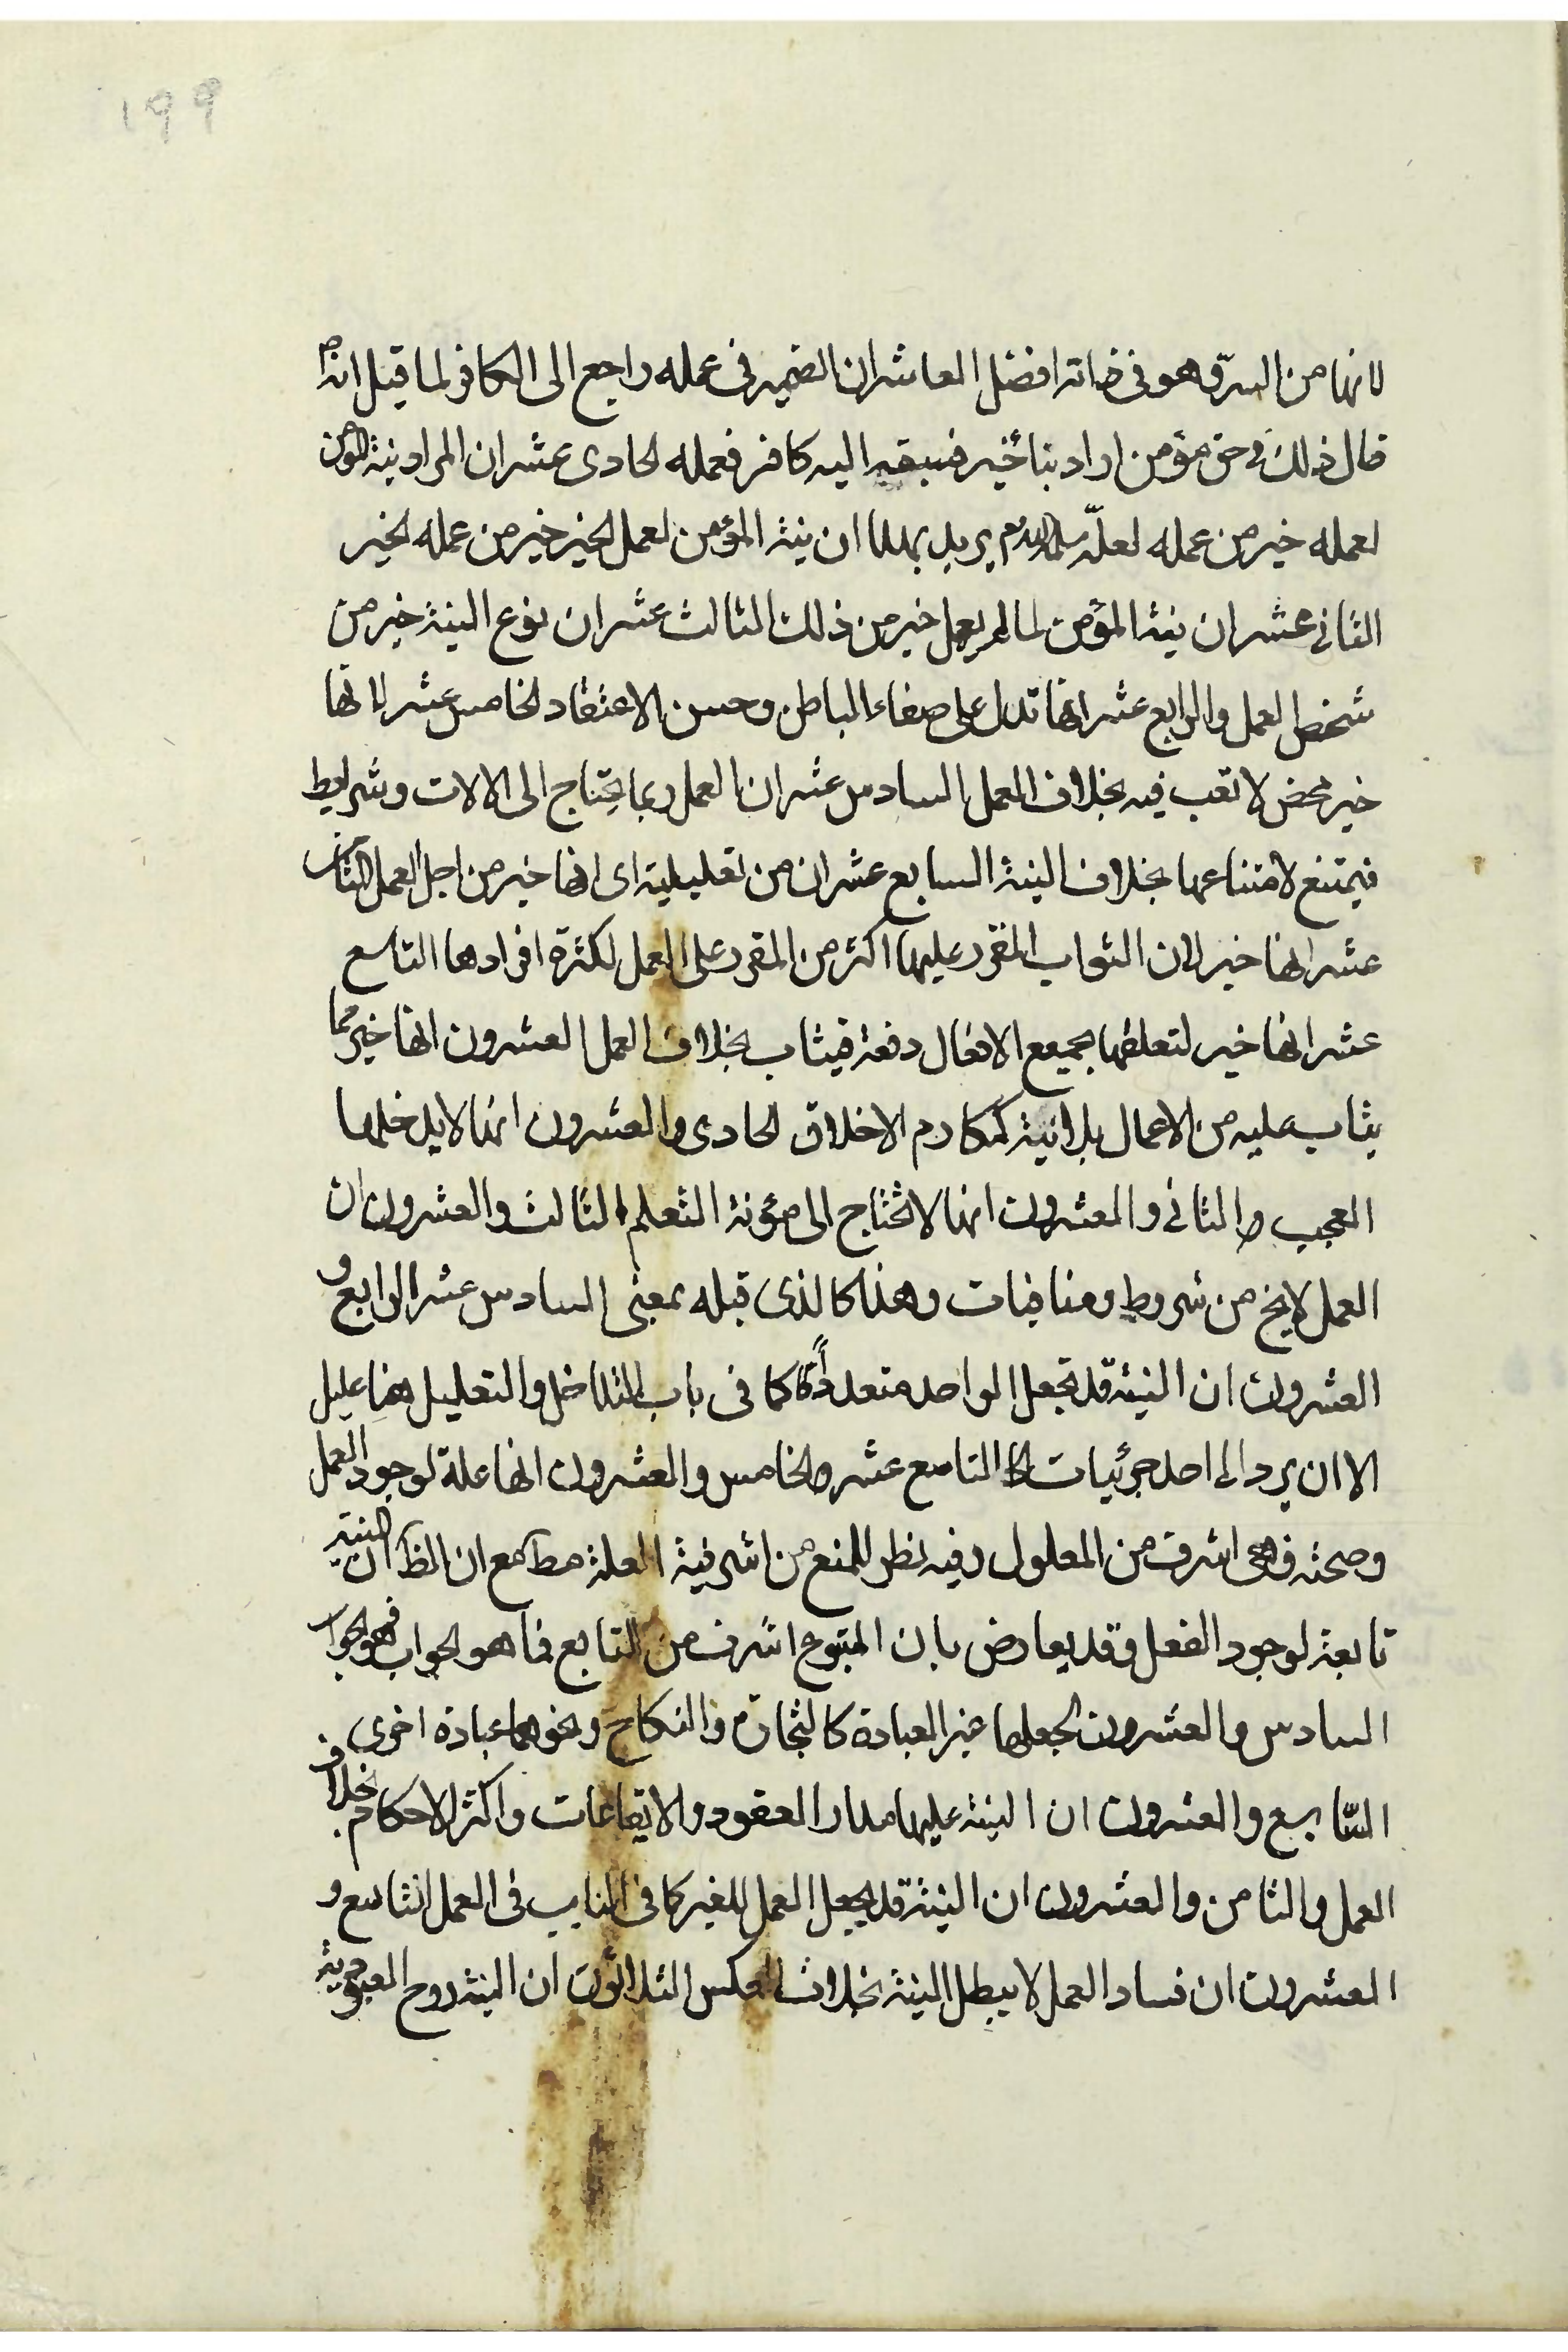 ١٩٩
لانها من السر وهو في ذاته افضل العاشر ان الضمير في عمله راجع الى الكافر لما قيل انه ص
قال ذلك في حق مؤمن اراد بناء خير فسبقه اليه كافر فعمله الحادى عشر ان المراد نية المؤمن
لعمله خير من عمله ان نية المؤمن لعمل الخير خير من عمله الخير
الثانى عشر ان نية المؤمن لما لم يعمل خير من ذلك الثالث عشر ان نوع النية خير من
شخص العمل والرابع عشر انها تدل على صفاء الباطن وحسن الاعتقاد الخامس عشر انها
خير محض لا تعب فيه بخلاف العمل السادس عشر ان العمل ربما يحتاج الى الالات وشرايط
فيمتنع لامتناعها بخلاف النية السابع عشر ان من تعليلية اى انها خير من اجل العمل الثامن
عشر انها خير لان الثواب المقرر عليها اكثر من المقرر على العمل لكثرة افرادها التاسع
عشر انها خير لتعلقها بجميع الافعال دفعة فيثاب بخلاف العمل العشرون انها خير مما
يثاب عليه من الاعمال بلا نية كمكارم الاخلاق الحادى والعشرون انها لا يدخلها
العجب والثانى والعشرون انها لا تحتاج الى مؤنة التعلم الثالث والعشرون ان
العمل لا يخ من شروط ومنافيات وهذا كالذى قبله بمعنى السادس عشر الرابع و
العشرون ان النية قد تجعل الواحد متعددًا كما فى باب التداخل والتعليل هنا عليل
الا ان يرد الى احد جزئيات التاسع عشر والخامس والعشرون انها علة لوجود العمل
وصحته فهى اشرف من المعلول وفيه نظر للمنع من اشرفية العلة مط مع ان الظ ان النية
تابعة لوجود الفعل وقد يعارض بان المتبوع اشرف من التابع فما هو الجواب فهو الجواب
السادس والعشرون لجعلها غير العبادة كالتجارة والنكاح ونحوهما عبادة اخرى
السابع والعشرون ان النية عليها مدار العقود والايقاعات واكثر الاحكام بخلاف
العمل والثامن والعشرون ان النية قد يجعل العمل للغير كما فى النايب فى العمل التاسع و
العشرون ان فساد العمل لا يبطل النية بخلاف العكس الثلاثون ان النية روح العبودية